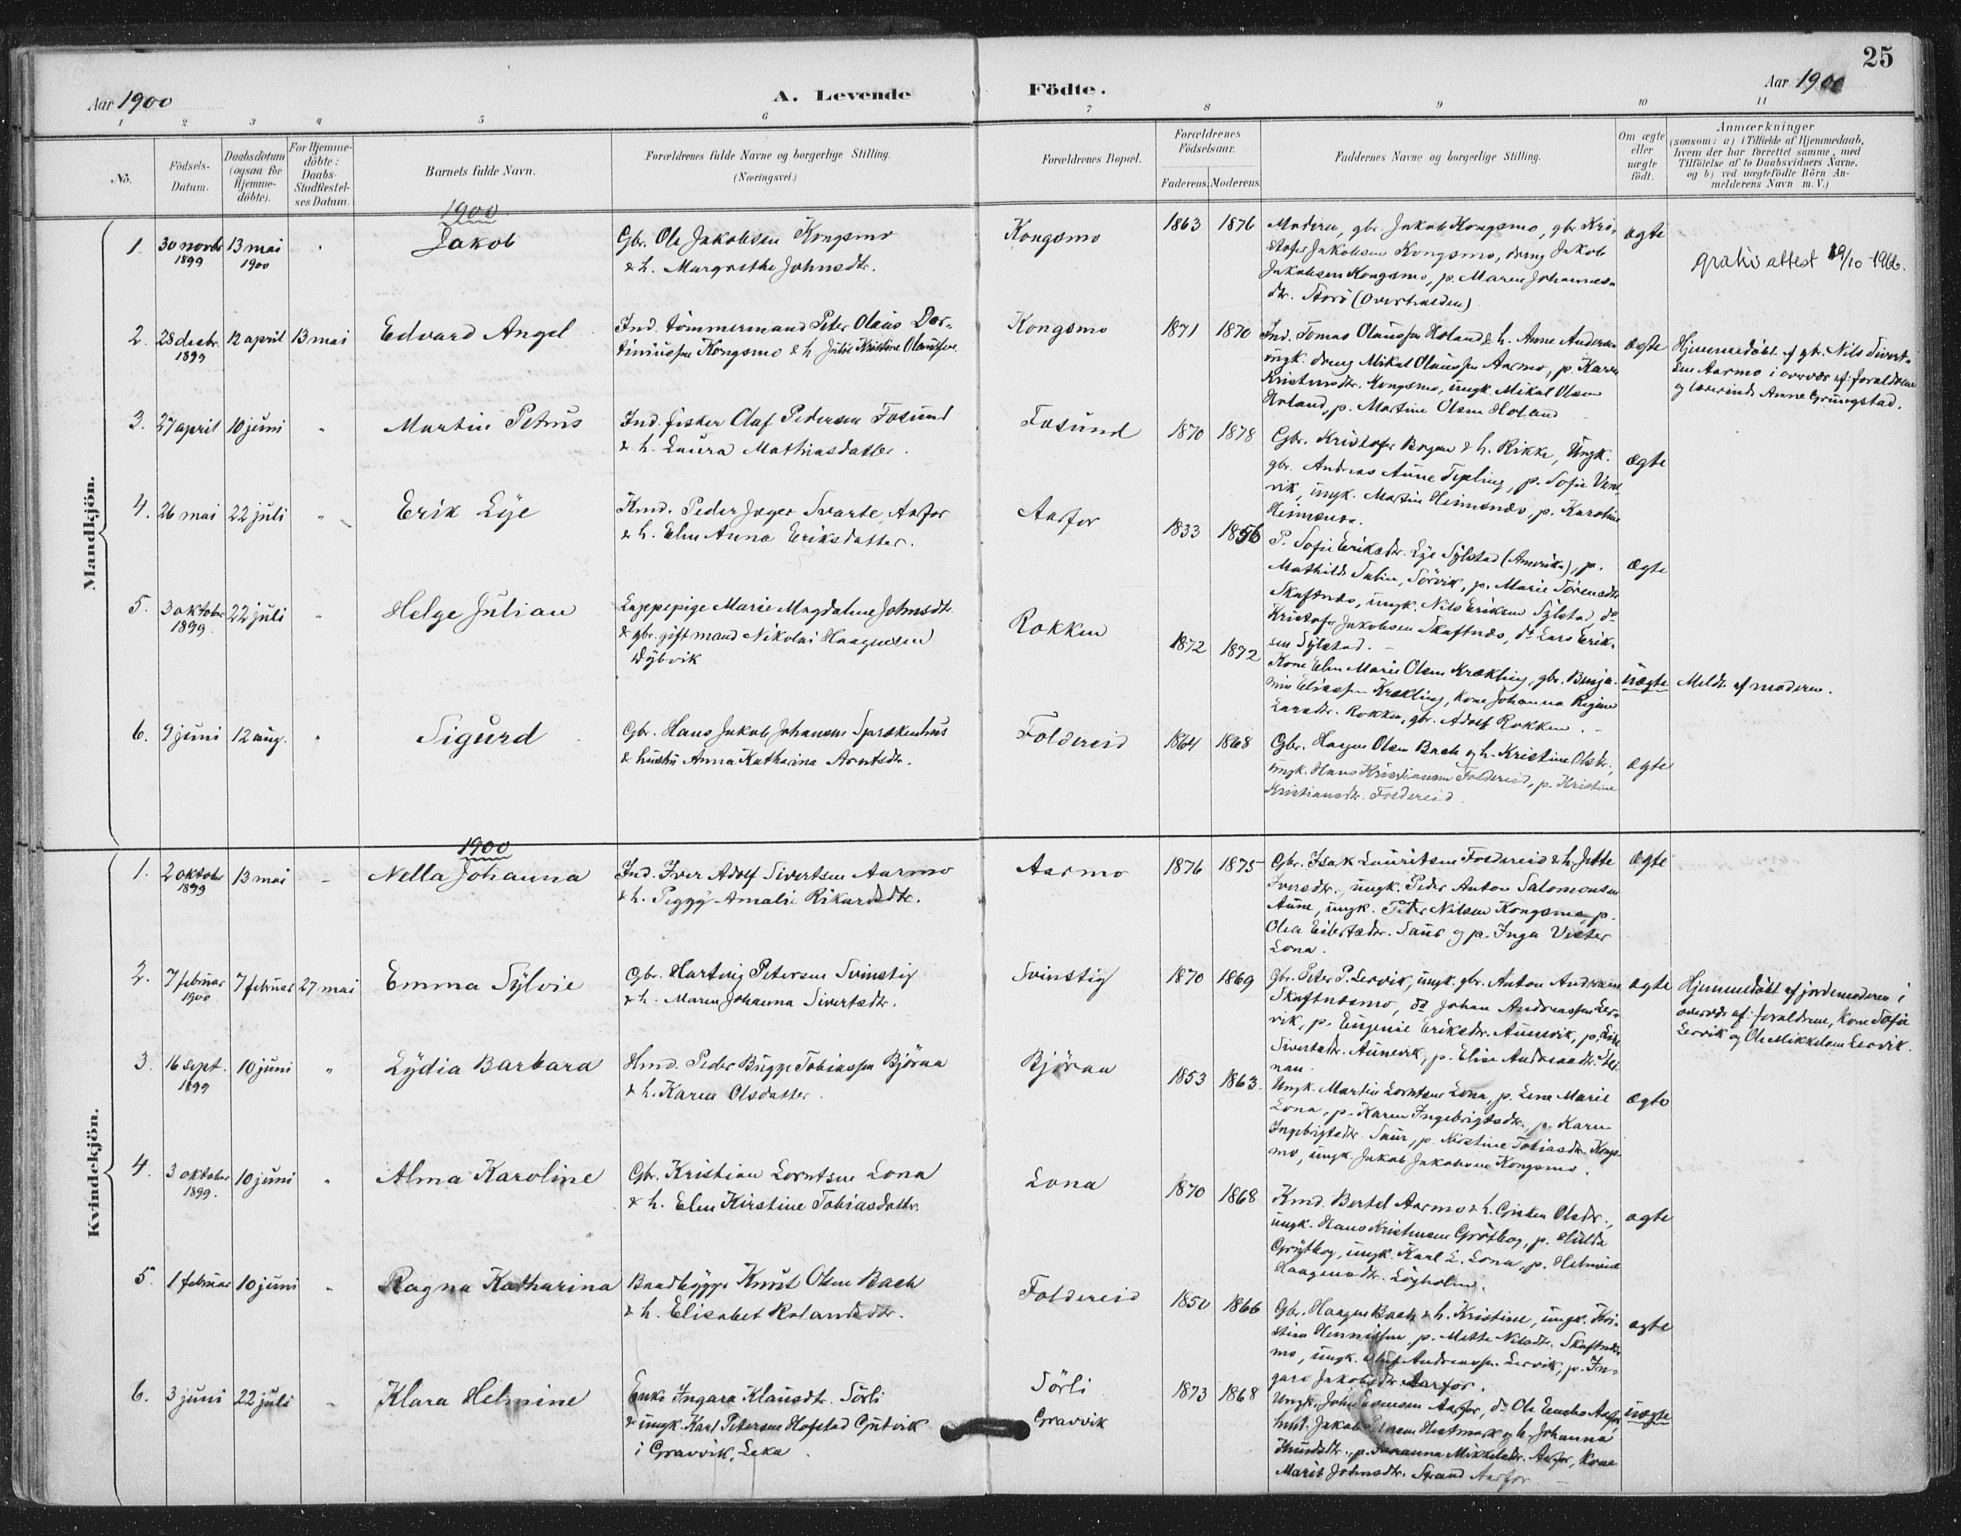 25
Aar 1900
A. Levende
Födte.
Aar 1900
1 2 3 4 5 6 7 8 9 10 11
No.
Födsels-Datum.
Daabsdatum (ogsaa for Hjemme-döbte).
For Hjemme-döbte: Daabs-Stadfæstel-ses Datum.
Barnets fulde Navn.
Forældrenes fulde Navne og borgerlige Stilling.
(Næringsvei.)
Forældrenes Bopæl.
Forældrenes Födselsaar.
Faderens. Moderens.
Faddernes Navne og borgerlige Stilling.
Om ægte eller uægte födt.
Anmærkninger
(saasom: a) i Tilfælde af Hjemmedaab,
hvem der har forrettet samme, med
Tilföielse af to Daabsvidners Navne.
og b) ved uægtefödte Börn An-
melderens Navn m. V.)
Mandkjön.
1900
1. 30 novbr 1899 13 mai 1900 " Jakob
Gbr. Ole Jakobsen Kongsmo
& h. Margrethe Johnsdtr.
Kongsmo 1863 1876
Moderen, gbr. Jakob Kongsmo, gbr. Kri-
stofer Jakobsen Kongsmo, dreng Jakob
Jakobsen Kongsmo, p. Maren Johannes-
dtr. Storö (Overhalden)
ægte
gratis attest 19/10-1966.
2. 28 decbr. 1899 12 april 13 mai Edvard Angel
Ind. tömmermand Peter Olaus Dor-
tinussen Kongsmo & h. Julie Kristine Olausen
Kongsmo 1871 1870
Ind. Tomas Olaussen Holand & h. Anne Andersen
ungk. dreng Mikal Olaussen Aarmo, p. Karen
Kristensdtr. Kongsmo, ungk. Mikal Olsen
Holand, p. Martine Olsen Holand
ægte
Hjemmedöbt af gbr. Nils Sivert-
sen Aarmo i overvær af: forældrene
og lærerinde Anne Grungstad.
3. 27 april 10 juni " Martin Petrus
Ind. fisker Olaf Pedersen Fosund
& h. Laura Mathiasdatter.
Fosund 1870 1878
Gbr. Kristofer Bogen & h. Rikke, Ungk.
gbr. Andreas Aune Tepling, p. Sofie
vik, ungk. Martin Heimsnes, p. Karoline
Heimsnes.
ægte
4. 26 mai 22 juli " Erik Lye
Kmd. Peder Jæger Svarte, Aarfor
& h. Elen Anna Eriksdatter.
Aarfor 1833 1856
P. Sofie Eriksdtr. Lye Sylstad (Amerika), p.
Mathilde Salin, Sörvik, p. Marie Sörensdtr
Skaftnes, ungk. Nils Eriksen Sylstad, do
Kristofer Jakobsen Skaftnes, do Lars Erik-
sen Sylstad.
ægte
5. 3 oktober 1899. 22 juli " Helge Julian
Lappepige Marie Magdalene Johnsdtr.
& gbr. gift mand Nikolai Haagensen
Dybvik
Rokken 1872 1872
Kone Elen Marie Olsen Krækling, gbr. Benja-
min Eliassen Krækling, Kone Johanna Regine
Larsdtr. Rokken, gbr. Adolf Rokken.
uægte
Meldt af moderen.
6. 9 juni 12 aug. " Sigurd
Gbr. Hans Jakob Johansen Sparækenhus
& hustru Anna Katharina Arntsdtr.
Foldereid 1864 1868
Gbr. Haagen Olsen Bach og h. Kristine Olsdtr.,
ungk. Hans Kristiansen Foldereid, p. Kristine
Kristiansdtr. Foldereid.
ægte
Kvindekjön.
1900
1. 2 oktober 1899 13 mai " Nella Johanna
Ind. Iver Adolf Sivertsen Aarmo
& h. Peggy Amalie Rikardsdtr.
Aarmo 1876 1875
Gbr. Isak Lauritsen Foldereid & h. Jette
Iversdtr., ungk. Peder Anton Salomonsen
Aune, ungk. Peter Nilsen Kongsmo, p.
Olea Eilertsdtr. Saur og p. Inga
Lona.
ægte
2. 7 februar 1900 7 februar 27 mai Emma Sylvie
Gbr. Hartvig Petersen Svinstig
& h. Maren Johanna Sivertsdtr.
Svinstig 1870 1869
Gbr. Peter P. Lervik, ungk. gbr. Anton Andreasen
Skaftnesmo, do Johan Andreassen Ler-
vik, p. Eugenie Eriksdtr. Aunevik, p.
Sivertsdtr. Aunevik, p. Elise Andreasdtr.
nau.
ægte
Hjemmedöbt af jordemoderen i
overvær af: forældrene, Kone Sofie
Lervik og Ole Mikkelsen Lervik.
3. 16 sept. 1899 10 juni " Lydia Barbara
Hmd. Peder Bugge Tobiassen Björaa
& h. Karen Olsdatter
Björaa 1853 1863.
Ungk. Martin Lorntsen Lona, p. Lene Marie
Lona, p. Karen Ingebrigtsdtr., p. Karen
Ingebrigtsdtr. Saur, p. Kirstine Tobiasdtr. Kongs-
mo, ungk. Jakob Jakobsen Kongsmo.
ægte
4. 3 oktober 1899. 10 juni " Alma Karoline
Gbr. Kristian Lorntsen Lona
& h. Elen Kirstine Tobiasdatter.
Lona 1870 1868
Kmd. Bertel Aarmo & h. Gjerken Olsdtr.,
ungk. Hans Kristensen Grötbog, p. Hilda
Grötbog, ungk. Karl L. Lona, p. Helmine
Haagensdtr. Lögholm.
ægte
5. 1 februar 10 juni " Ragna Katharina
Baadbygger Knut Olsen Bach
& h. Elisabet Rolandsdtr.
Foldereid 1850 1866
Gbr. Haagen Bach & h. Kristine, ungk. Kri-
stian Henningsen, p. Mette Nilsdtr. Skaftnes-
mo, ungk. Oluf Andreassen Lervik, p. In-
gara Jakobsdtr. Aarfor.
ægte
6. 3 juni 22 juli " Klara Helmine
Enke Ingara Klausdtr. Sörli
& ungk. Karl Petersen Hofstad Gutvik
i Gravvik, Leka.
Sörli
Gravvik
1873 1868
Ungk. John Evensen Aarfor, do Ole Aarfor,
hmd. Jakob Hestmark og h. Johanna
Knudsdtr., p. Johanna Mikkelsdtr. Aarfor, Kone
Marit Johnsdtr. Strand Aarfor
uægte